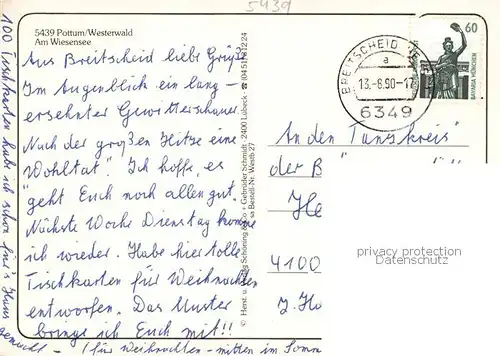 5439
5439 Pottum/Westerwald
Am Wiesensee
Aus Breitscheid liebe Grüße
Im Augenblick ein lang-
ersehnter Gewitterschauer
Nach der großen Hitze eine
Wohltat! Ich hoffe, es
geht Euch noch allen gut.
Nächste Woche Dienstag komme
ich wieder. Habe hier tolle
Tischkarten für Weihnachten
entworfen. Das Muster
bringe ich Euch mit!!
(für Weihnachten - mitten im Somm
100 Tischkarten habe ich schon für's Haus
gemacht –
© Herst. u. Verlag Schöning & Co + Gebrüder Schmidt, 2400 Lübeck ☎ (0451) 81224
Bestell-Nr. Westb 27
BREITSCHEID
a
13.-8.90-17
6349
60
BAVARIA MÜNCHEN
An den Tanzkreis
der B
He
4100
z. Ho
privacy protection
Datenschutz